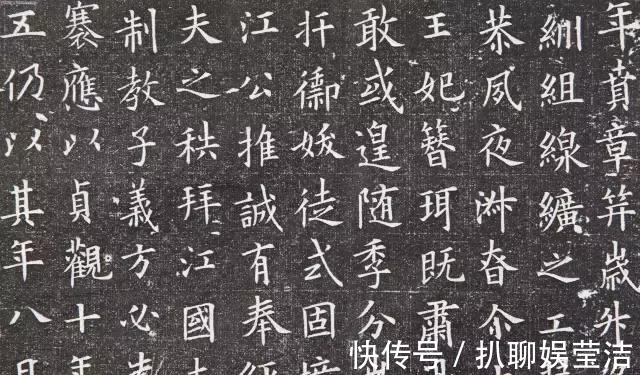 年賁章笄歲外
紃組線纊之工
恭夙夜
王妃簪珥既肅
敢或遑随季分
扞媛徒弍固
江公推誠有奉經
夫之秩拜江國
制教子義方必
褰應以貞觀十年
五仍以其年八月
快传号 / 扒聊娱莹洁